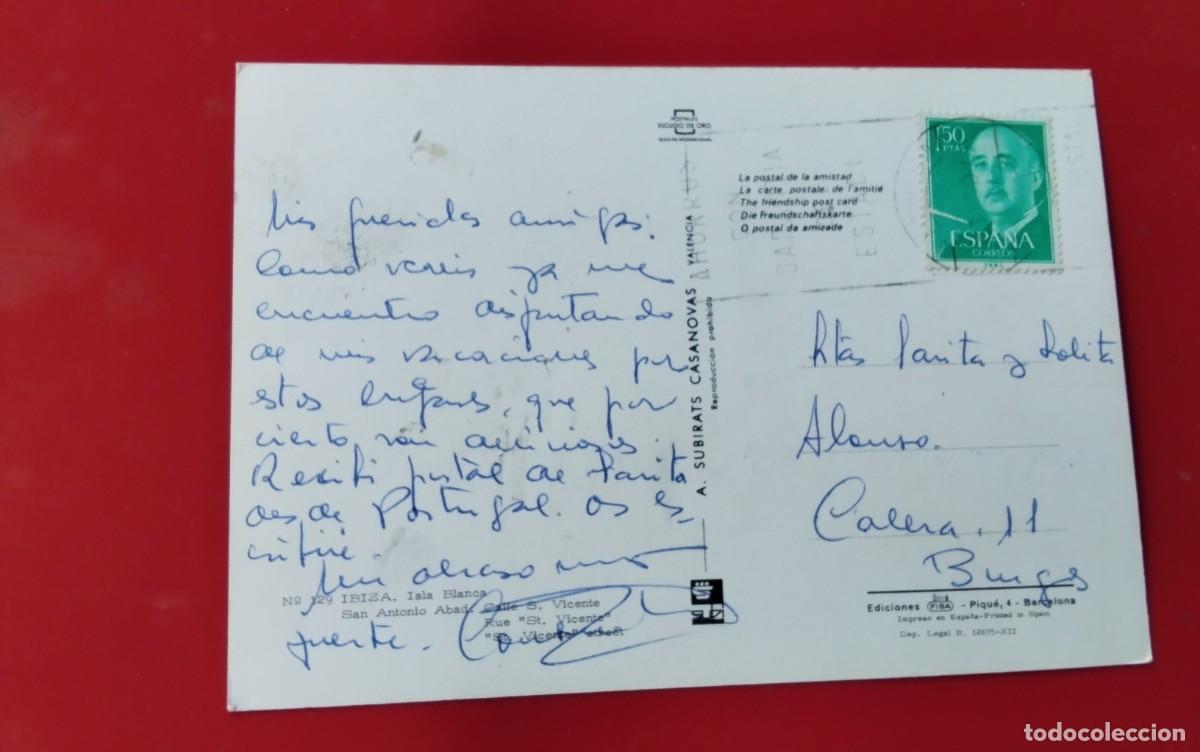 Mis queridas amigas:
Como vereis ya me
encuentro disfrutando
de mis vacaciones por
estos lugares, que por
cierto, son
Recibí postal de Parita
desde Portugal. Os es-
cribiré.
Un abrazo muy
fuerte.
Nº 129 IBIZA. Isla Blanca
San Antonio Abad. Calle S. Vicente
Rue "St. Vicente"
"St. Vicente" street
POSTALES
ESCUDO DE ORO
A. SUBIRATS CASANOVAS VALENCIA
Reproducción prohibida
La postal de la amistad
La carte postale de l'amitié
The friendship post card
Die Freundschaftskarte
O postal da amizade
AHORRO
CON
GARANTIA
ESTATAL
1'50
PTAS
ESPAÑA
CORREOS
Srtas Parita y Lolita
Alonso.
Calera, 11
Burgos
Ediciones FISA - Piqué, 4 - Barcelona
Impreso en España-Printed in Spain
Dep. Legal B. 12675-XII
todocoleccion